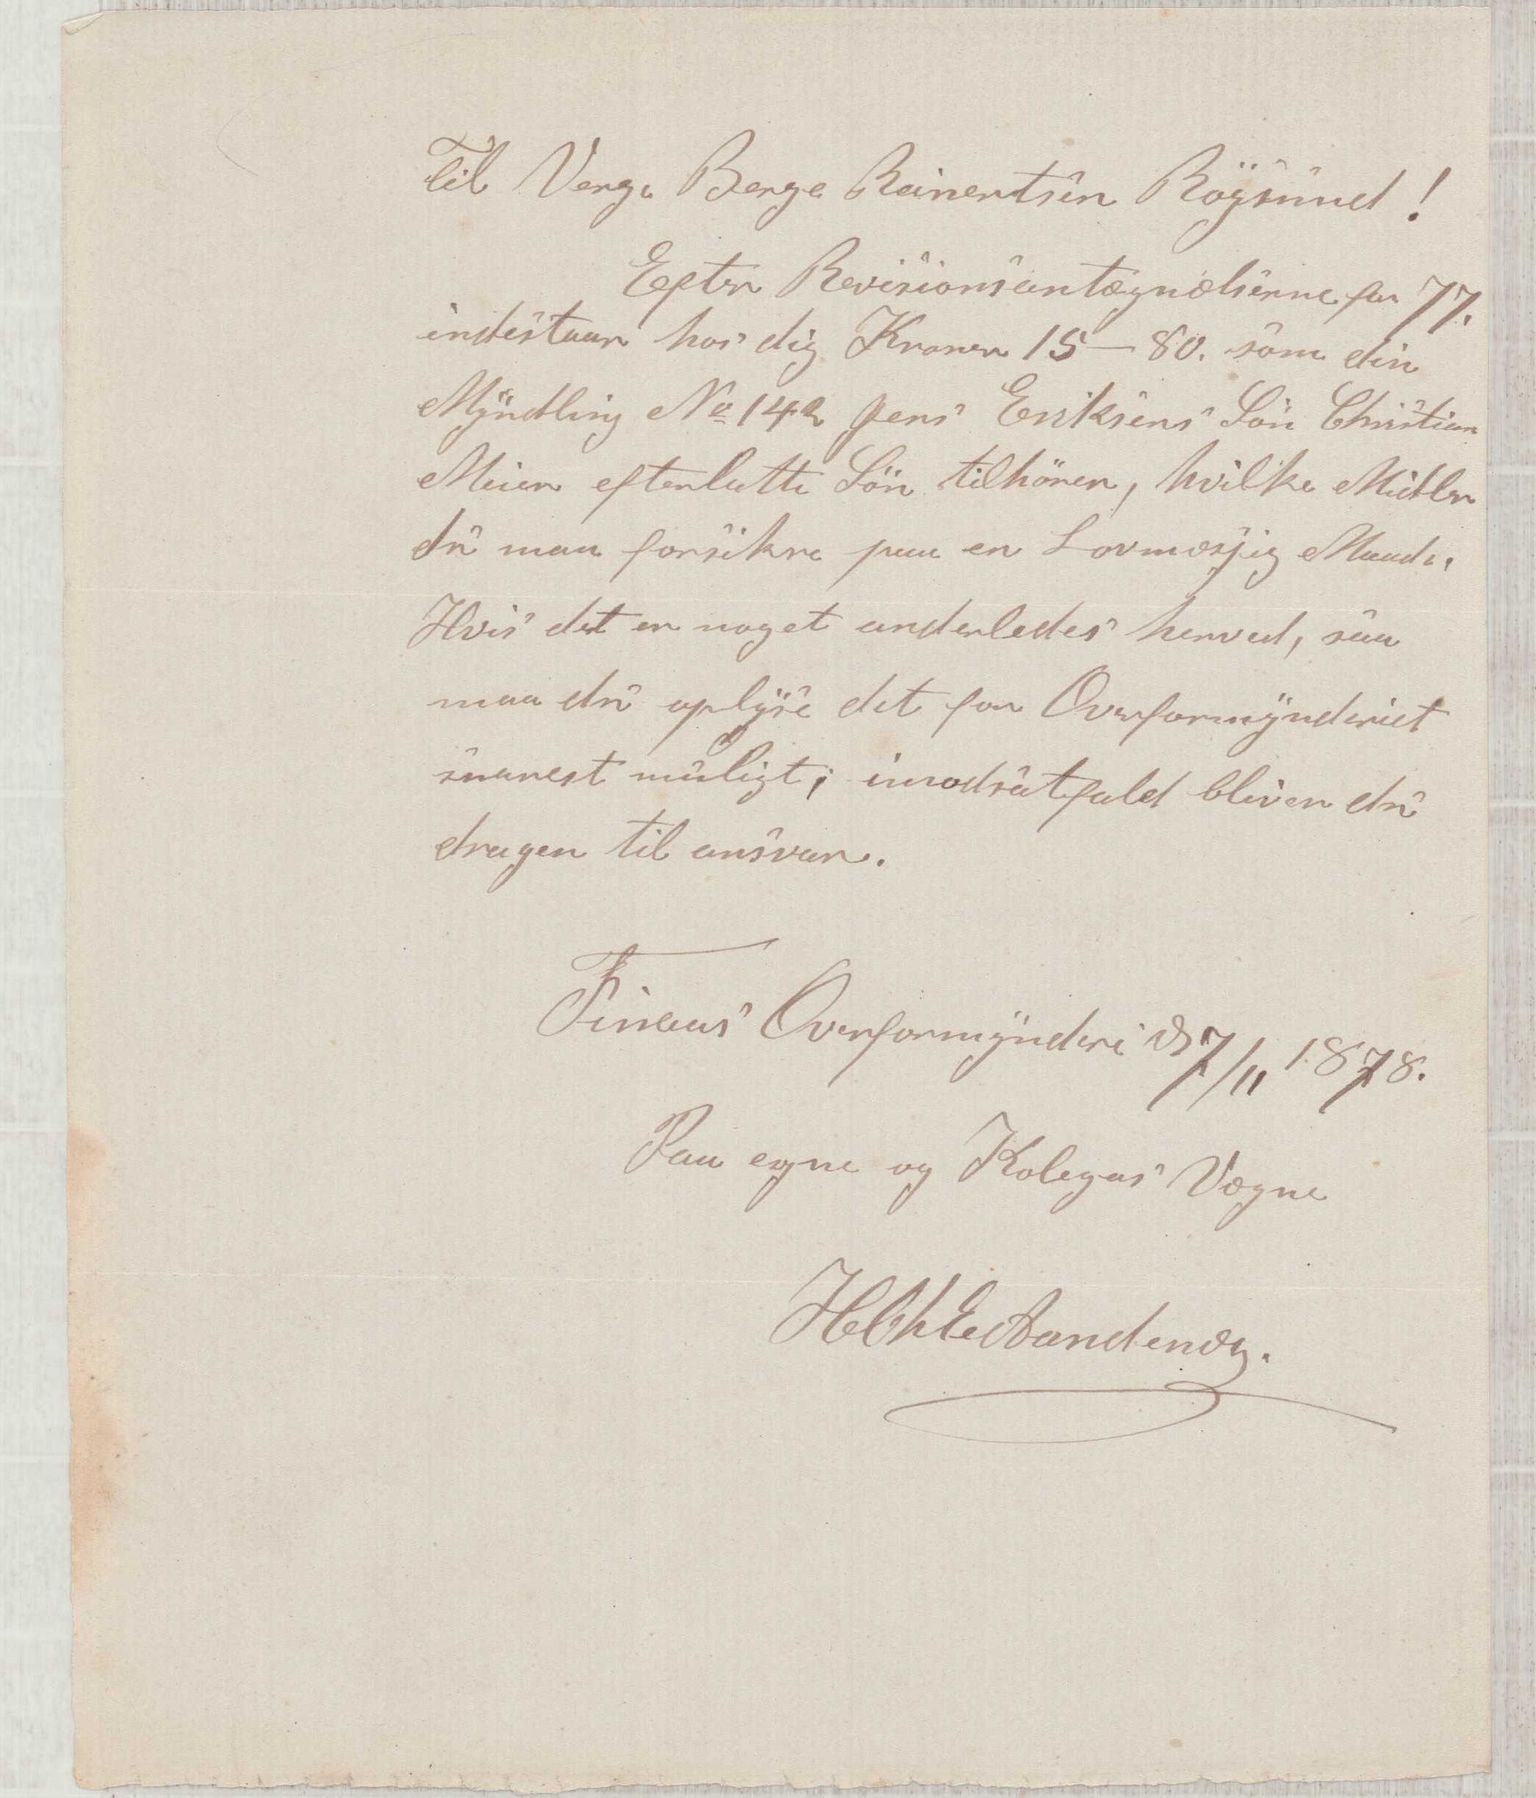 Til Verge Berge Reinertsen Røgsund!
Efter Revisionsantægnelserne for 77.
indestaar hos dig Kroner 15–80. som din
Myndling No 142 Jens Eriksens Søn Christian
Meier efterlatte Søn tilhører, hvilke Midler
du maa forsikre paa en Lovmæssig Maade.
Hvis det er noget anderledes herved, saa
maa du oplyse det for Overformynderiet
snarest muligt; imodsatfald bliver du
dragen til ansvar.
Finaas Overformynderi d 7/11 1878.
Paa egne og Kolegas Vegne